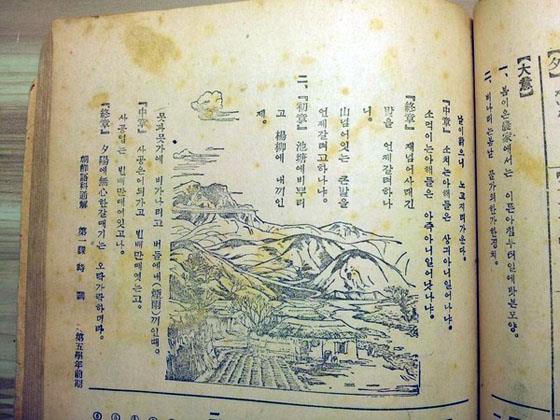 【大意】
一、봄이온農家에서는 이른아침부터일에밧분모양。
二、비나리는봄날 물가의한가한경치。
날이밝으니 노고지리가운다。
『中章』 소치는아해들은 상긔아니일어낫나냐。
소먹이는아해들은 아즉아니일어낫나냐。
『終章』 재넘어사래긴
밭을 언제갈려하나
니。
山넘어잇는 큰밭을
언제갈려고하나냐。
二、『初章』 池塘에비뿌리
고 楊柳에 내끼인
제。
못과못가에 비가나리고 버들에 (煙雨)끼인때。
『中章』 사공은어듸가고 븬배만매엿는고。
사공업는 븬배만매여잇고나。
『終章』 夕陽에無心한갈매기는 오락가락하더라。
朝鮮語科通解 第一課 時調 第五學年前期